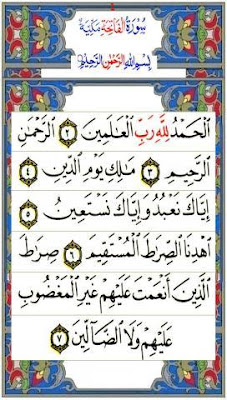 سُورَةُ الْفَاتِحَةِ مَكِّيَّةٌ
بِسْمِ اللَّهِ الرَّحْمَٰنِ الرَّحِيمِ
الْحَمْدُ لِلَّهِ رَبِّ الْعَالَمِينَ ٢ الرَّحْمَٰنِ
الرَّحِيمِ ٣ مَالِكِ يَوْمِ الدِّينِ ٤
إِيَّاكَ نَعْبُدُ وَإِيَّاكَ نَسْتَعِينُ ٥
اهْدِنَا الصِّرَاطَ الْمُسْتَقِيمَ ٦ صِرَاطَ
الَّذِينَ أَنْعَمْتَ عَلَيْهِمْ غَيْرِ الْمَغْضُوبِ
عَلَيْهِمْ وَلَا الضَّالِّينَ ٧